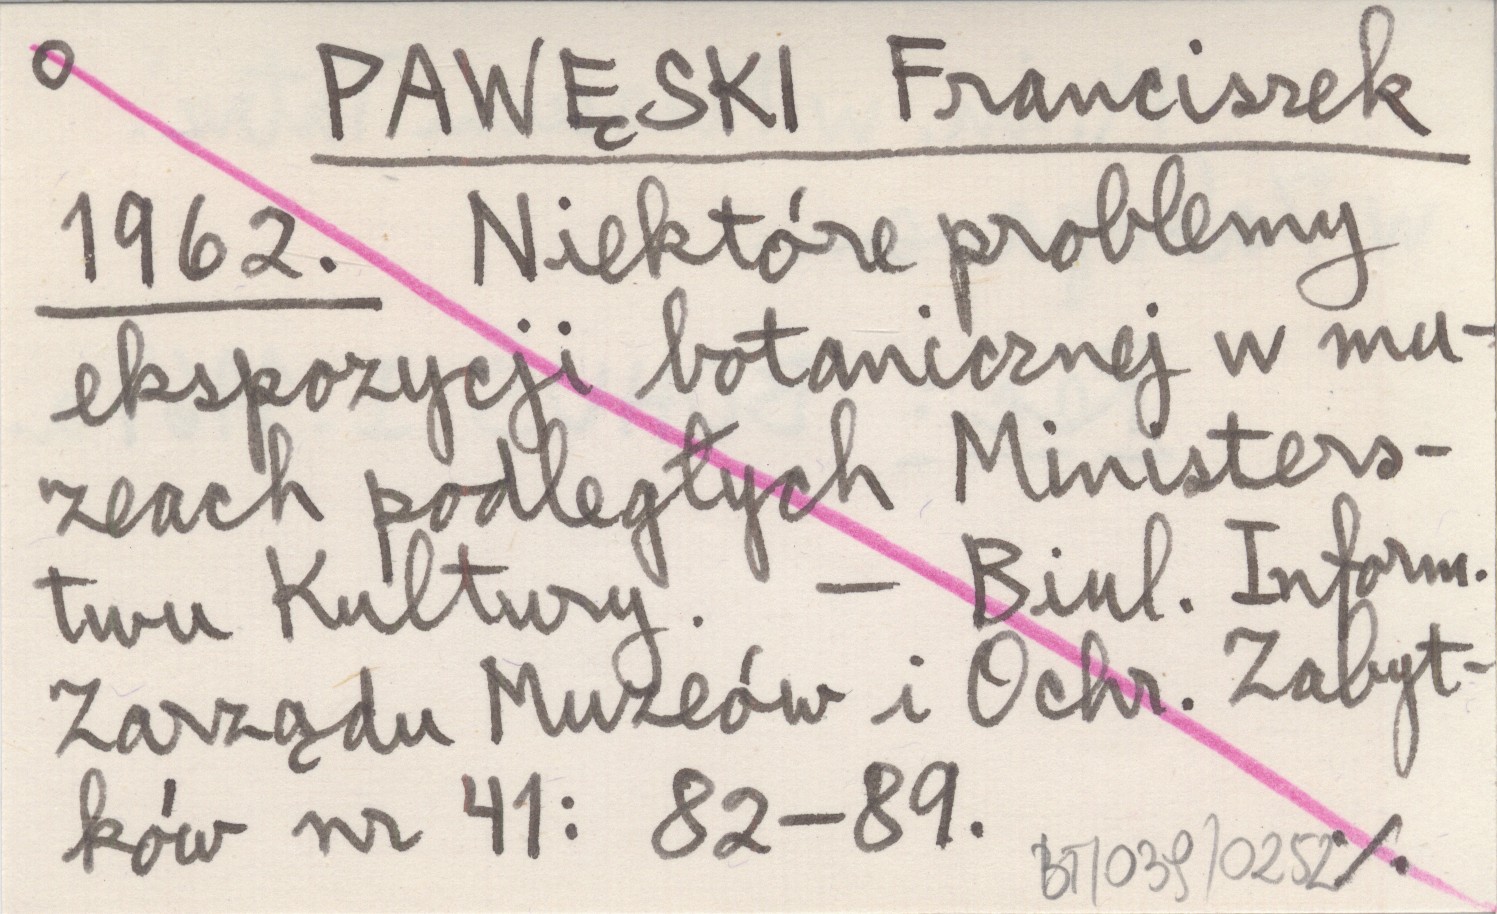 o PAWĘSKI Franciszek
1962. Niektóre problemy
ekspozycji botanicznej w mu-
zeach podległych Ministers-
twu Kultury. — Biul. Inform.
Zarządu Muzeów i Ochr. Zabyt-
ków nr 41: 82–89.
BT/039/0252 ·/.